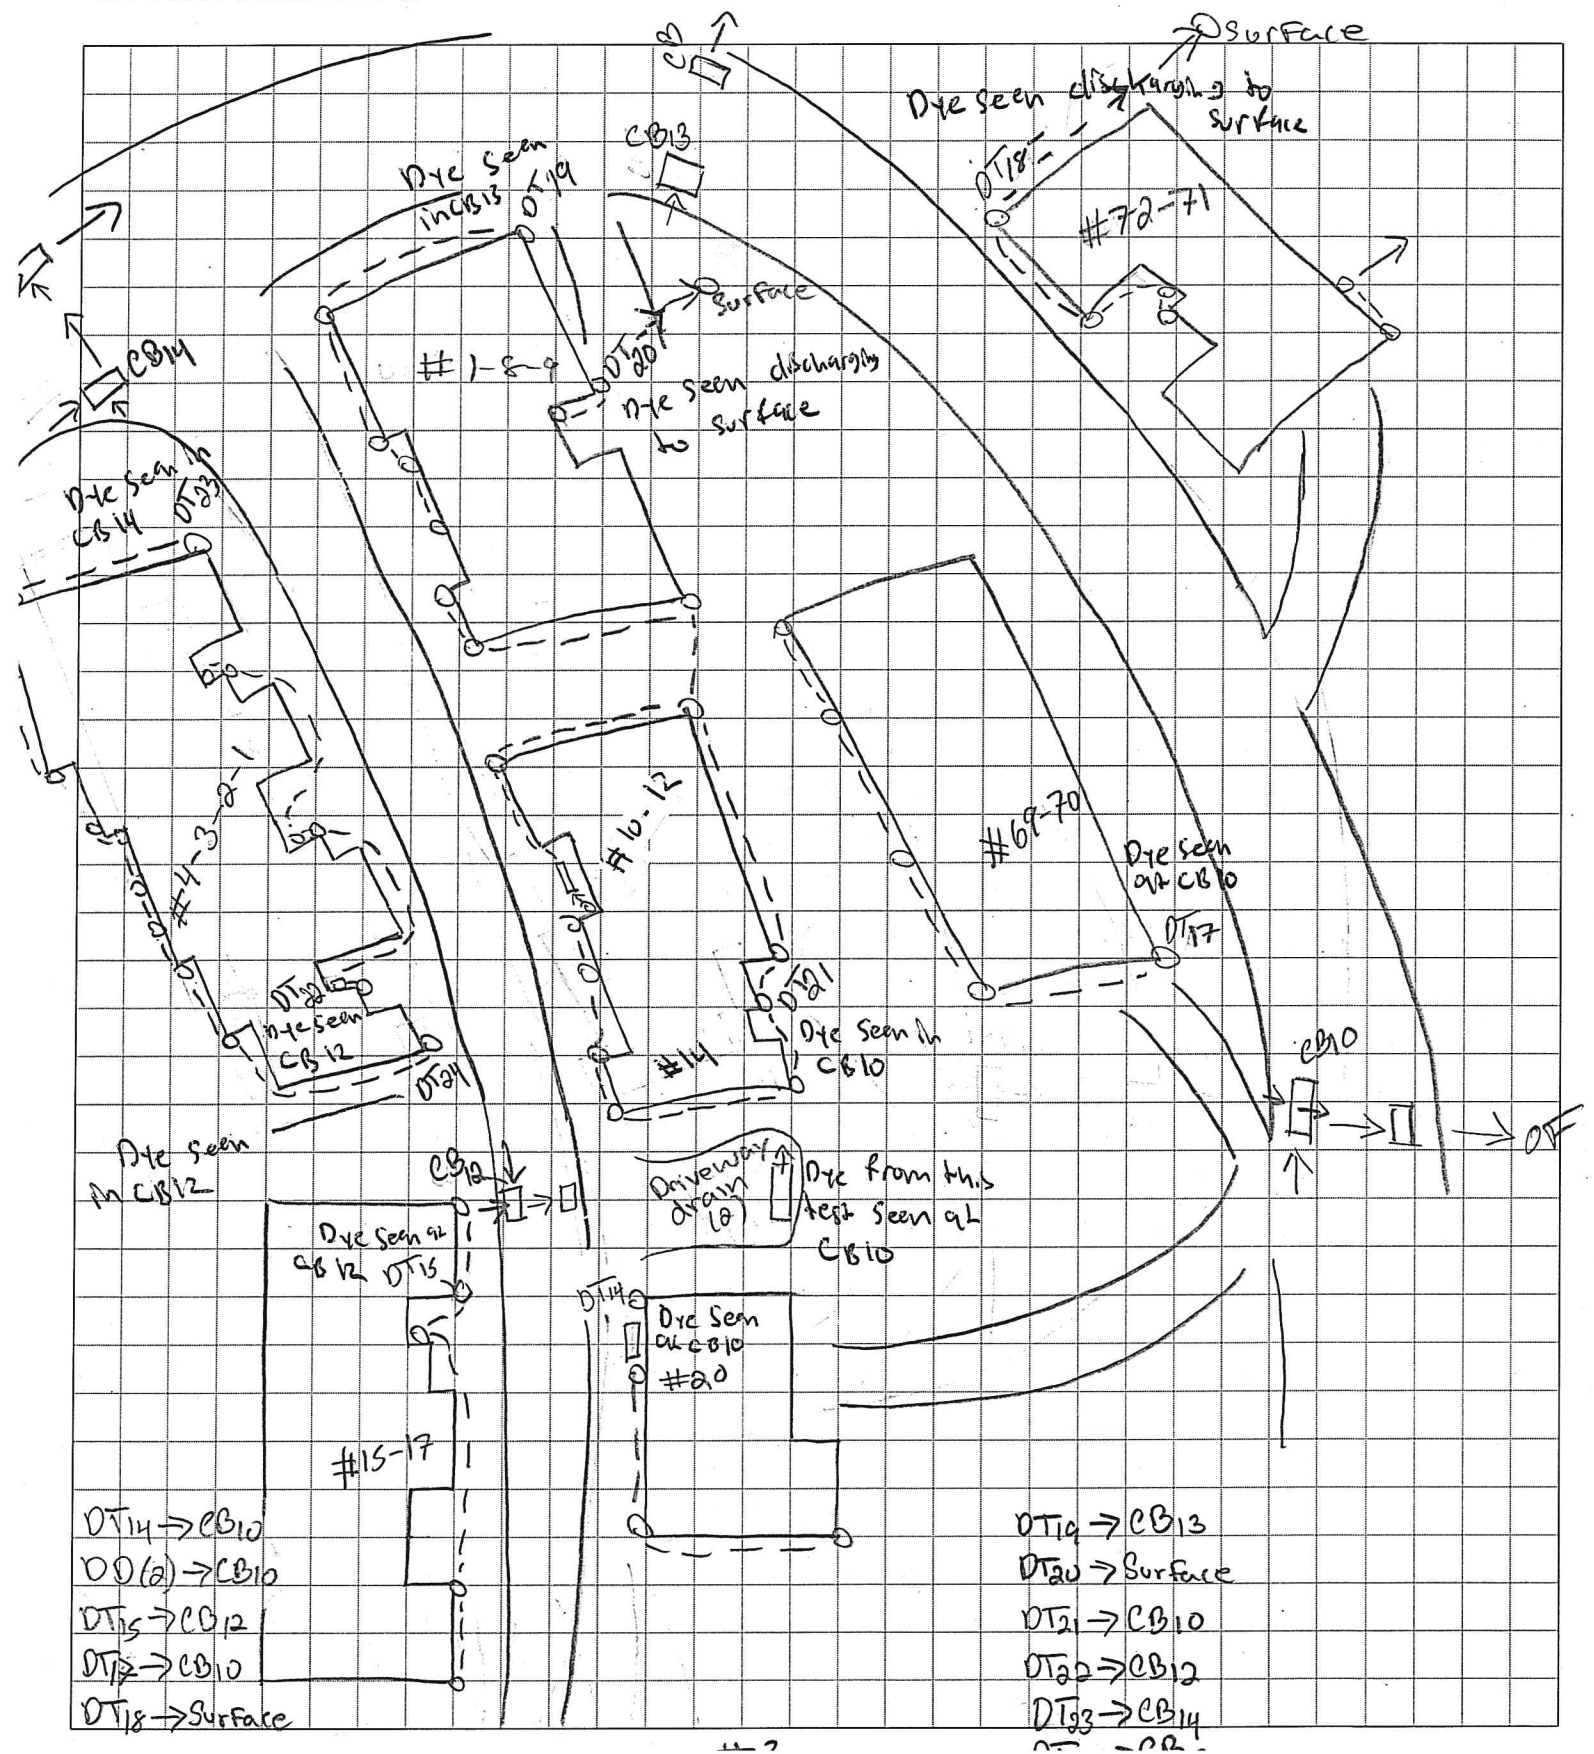 Surface
CB
Dye seen discharging to
surface
CB13
Dye seen
in CB13
DT19
DT18
#72-71
Surface
CB14
#1-8-9
DT20
Dye seen discharging
to surface
Dye seen in
CB14
DT23
#4-3-2-1
#10-12
#69-70
Dye seen
at CB10
DT17
DT22
Dye seen
CB12
DT21
Dye seen in
CB10
#14
DT24
CB10
OF
Dye seen
in CB12
CB12
Driveway
drain
(2)
Dye from this
test seen at
CB10
Dye seen at
CB12
DT15
DT14
Dye seen
at CB10
#20
#15-17
DT14→CB10
DD(2)→CB10
DT15→CB12
DT17→CB10
DT18→Surface
DT19→CB13
DT20→Surface
DT21→CB10
DT22→CB12
DT23→CB14